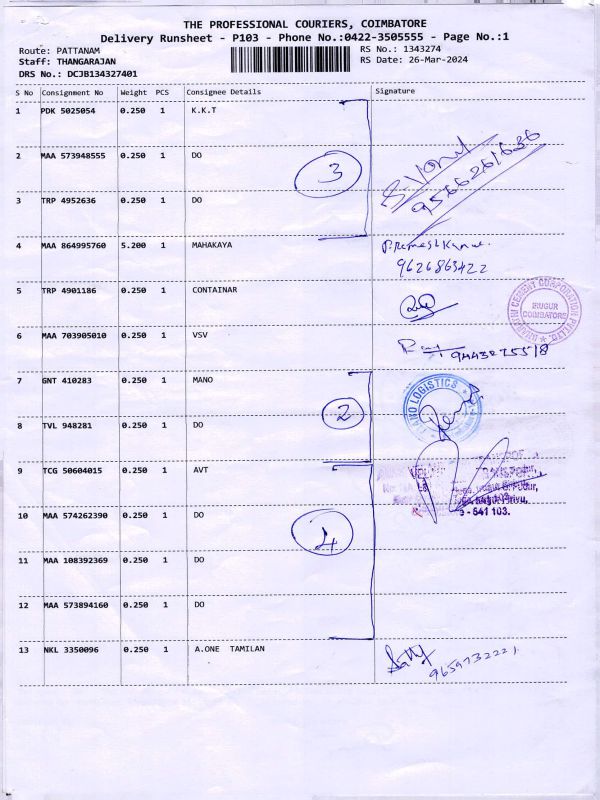 THE PROFESSIONAL COURIERS, COIMBATORE
Delivery Runsheet - P103 - Phone No.:0422-3505555 - Page No.:1
Route: PATTANAM
RS No.: 1343274
Staff: THANGARAJAN
RS Date: 26-Mar-2024
DRS No.: DCJB134327401
S No Consignment No Weight PCS Consignee Details Signature
1 PDK 5025054 0.250 1 K.K.T
2 MAA 573948555 0.250 1 DO
3
3 TRP 4952636 0.250 1 DO
9566261636
4 MAA 864995760 5.200 1 MAHAKAYA
P.RameshKumar.
9626863422
5 TRP 4901186 0.250 1 CONTAINAR
CEMENT CORPORATION
IRUGUR
COIMBATORE
6 MAA 703905010 0.250 1 VSV
9443275518
7 GNT 410283 0.250 1 MANO
MANO LOGISTICS
2
8 TVL 948281 0.250 1 DO
9 TCG 50604015 0.250 1 AVT
10 MAA 574262390 0.250 1 DO
- 641 103.
4
11 MAA 108392369 0.250 1 DO
12 MAA 573894160 0.250 1 DO
13 NKL 3350096 0.250 1 A.ONE TAMILAN
9659732221